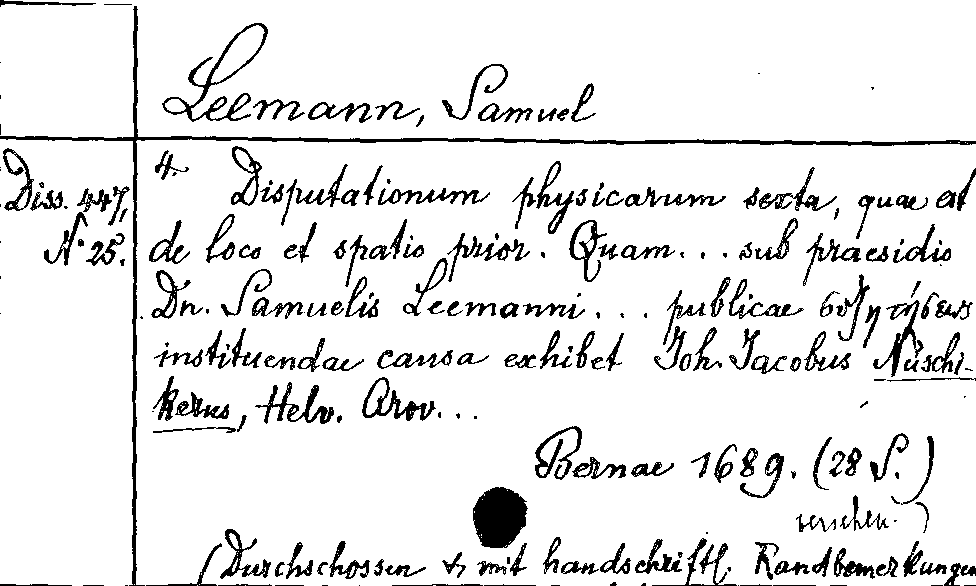 Leemann, Samuel
Diss. 447,
No 25.
4. Disputationum physicarum sexta, quae est
de loco et spatio prior. Quam... sub praesidio
Dn. Samuelis Leemanni... publicae συζητήσεως
instituendae causa exhibet Joh. Jacobus Nüschi-
kerus, Helv. Arov...
Bernae 1689. (28 S.)
versehen.)
(Durchschossen & mit handschriftl. Randbemerkunge